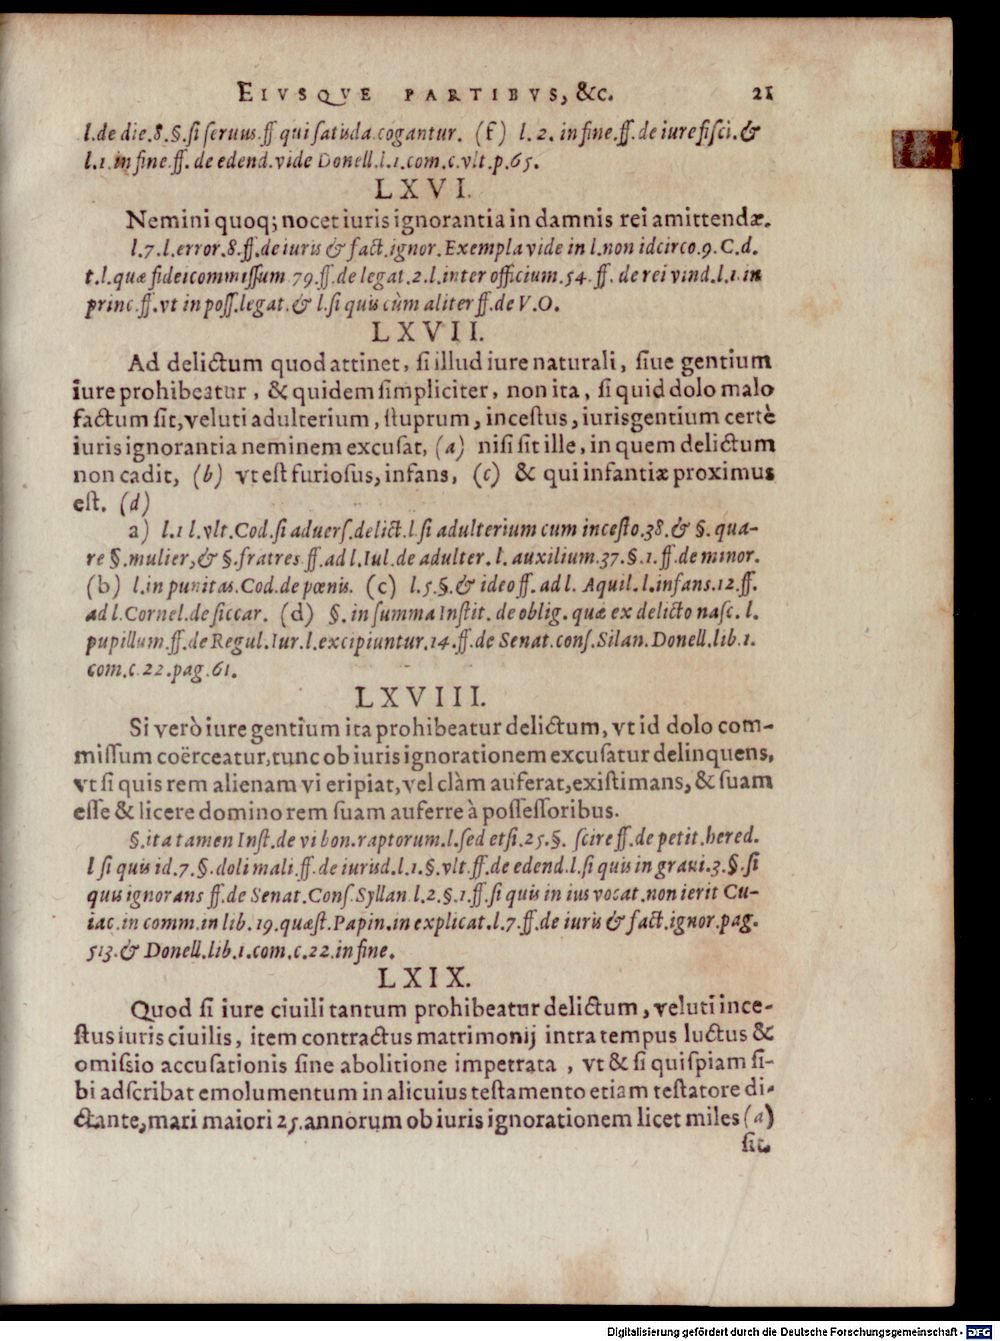 EIVSQVE PARTIBVS, &c. 21
l.de die.8.§.ſi ſeruus.ff qui ſatisda.cogantur. (f) l.2. in fine.ff.de iure fiſci.&
l.1.in fine.ff. de edend.vide Donell.l.1.com.c.vlt.p.65.
LXVI.
Nemini quoq; nocet iuris ignorantia in damnis rei amittendæ.
l.7.l.error.8.ff.de iuris & fact.ignor.Exempla vide in l.non idcirco.9.C.d.
t.l.quæ fideicommiſſum 79.ff.de legat.2.l.inter officium.54.ff. de rei vind.l.1.in
princ.ff.vt in poſſ.legat.& l.ſi quis cùm aliter ff.de V.O.
LXVII.
Ad delictum quod attinet, ſi illud iure naturali, ſiue gentium
iure prohibeatur, & quidem ſimpliciter, non ita, ſi quid dolo malo
factum ſit, veluti adulterium, ſtuprum, inceſtus, iurisgentium certè
iuris ignorantia neminem excuſat, (a) niſi ſit ille, in quem delictum
non cadit, (b) vt eſt furioſus, infans, (c) & qui infantiæ proximus
eſt. (d)
a) l.1 l.vlt.Cod.ſi aduerſ.delict.l.ſi adulterium cum inceſto.38.& §. qua-
re §.mulier,& §.fratres ff.ad l.Iul.de adulter.l. auxilium.37.§.1.ff.de minor.
(b) l.in punitas.Cod.de pœnis. (c) l.5.§.& ideo ff. ad l. Aquil.l.infans.12.ff.
ad l.Cornel.de ſiccar. (d) §. in ſumma Inſtit. de oblig. quæ ex delicto naſc. l.
pupillum.ff.de Regul.Iur.l.excipiuntur.14.ff.de Senat.conſ.Silan.Donell.lib.1.
com.c.22.pag.61.
LXVIII.
Si verò iure gentium ita prohibeatur delictum, vt id dolo com-
miſſum coërceatur, tunc ob iuris ignorationem excuſatur delinquens,
vt ſi quis rem alienam vi eripiat, vel clàm auferat, exiſtimans, & ſuam
eſſe & licere domino rem ſuam auferre à poſſeſſoribus.
§.ita tamen Inſt.de vi bon.raptorum.l.ſed etſi.25.§. ſcire ff.de petit.hered.
l ſi quis id.7.§.doli mali.ff.de iurisd.l.1.§.vlt.ff.de edend.l.ſi quis in graui.3.§.ſi
quis ignorans ff.de Senat.Conſ.Syllan l.2.§.1.ff.ſi quis in ius vocat.non ierit Cu-
iac.in comm.in lib.19.quæſt.Papin.in explicat.l.7.ff.de iuris & fact.ignor.pag.
513.& Donell.lib.1.com.c.22.in fine.
LXIX.
Quod ſi iure ciuili tantum prohibeatur delictum, veluti ince-
ſtus iuris ciuilis, item contractus matrimonij intra tempus luctus &
omiſsio accuſationis ſine abolitione impetrata, vt & ſi quiſpiam ſi-
bi adſcribat emolumentum in alicuius teſtamento etiam teſtatore di-
ctante, mari maiori 25.annorum ob iuris ignorationem licet miles (a)
ſit.
Digitalisierung gefördert durch die Deutsche Forschungsgemeinschaft - DFG